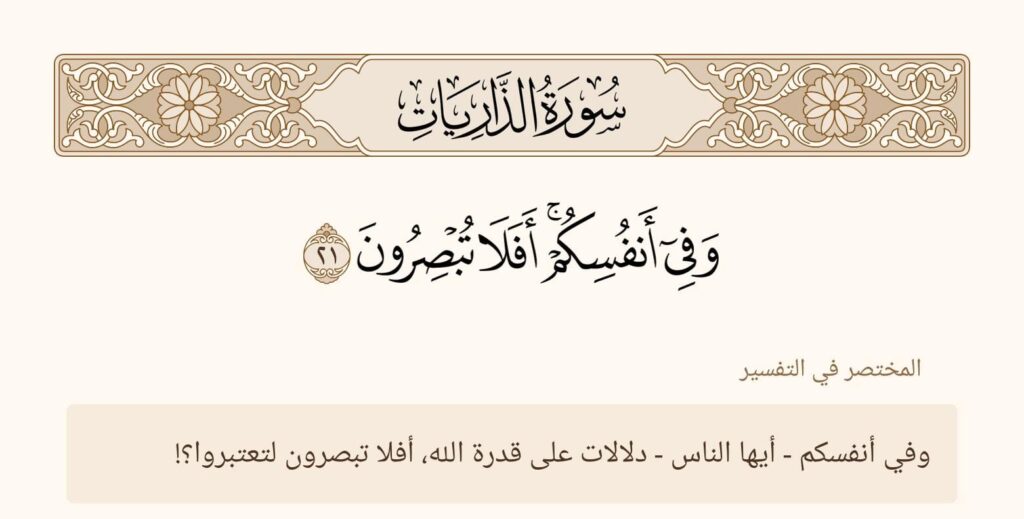 سُورَةُ الذَّارِيَاتِ
وَفِيٓ أَنفُسِكُمْۚ أَفَلَا تُبْصِرُونَ ٢١
المختصر في التفسير
وفي أنفسكم - أيها الناس - دلالات على قدرة الله، أفلا تبصرون لتعتبروا؟!